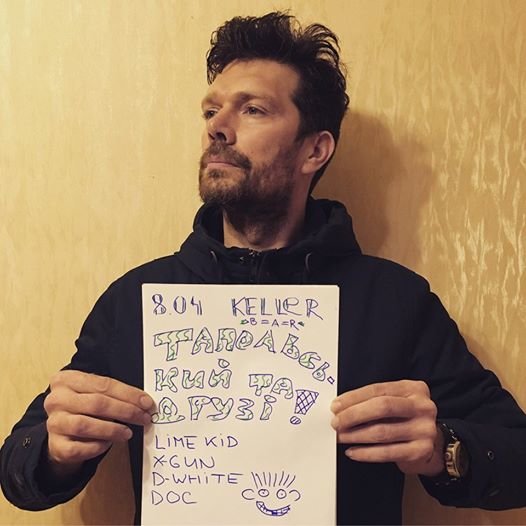 8.04 KELLER
B=A=R
ТАПОЛЬСЬ-
КИЙ ТА
ДРУЗІ!
LIME KID
X-GUN
D-WHITE
DOC